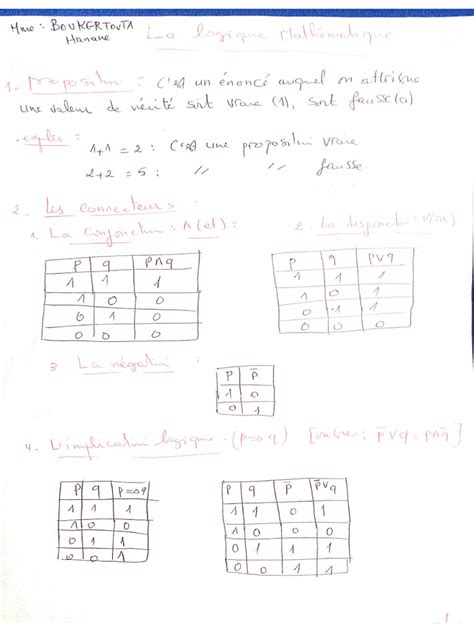 Mme : BOUKERTOUTA
Hanane
La logique Mathématique
1. proposition : c'est un énoncé auquel on attribue
une valeur de vérité soit vraie (1), soit fausse (0)
exples :
1+1 = 2 : c'est une proposition vraie
2+2 = 5 : // // fausse
2. Les connecteurs :
1. La conjonction : ∧ (et) :
p q p∧q
1 1 1
1 0 0
0 1 0
0 0 0
2. La disjonct : ∨(ou)
p q p∨q
1 1 1
1 0 1
0 1 1
0 0 0
3 La négation :
p p̅
1 0
0 1
4. L'implication logique : (p⇒q) [ : p̅∨q = p∧q̅]
p q p⇒q
1 1 1
1 0 0
0 1 1
0 0 1
p q p̅ p̅∨q
1 1 0 1
1 0 0 0
0 1 1 1
0 0 1 1
1